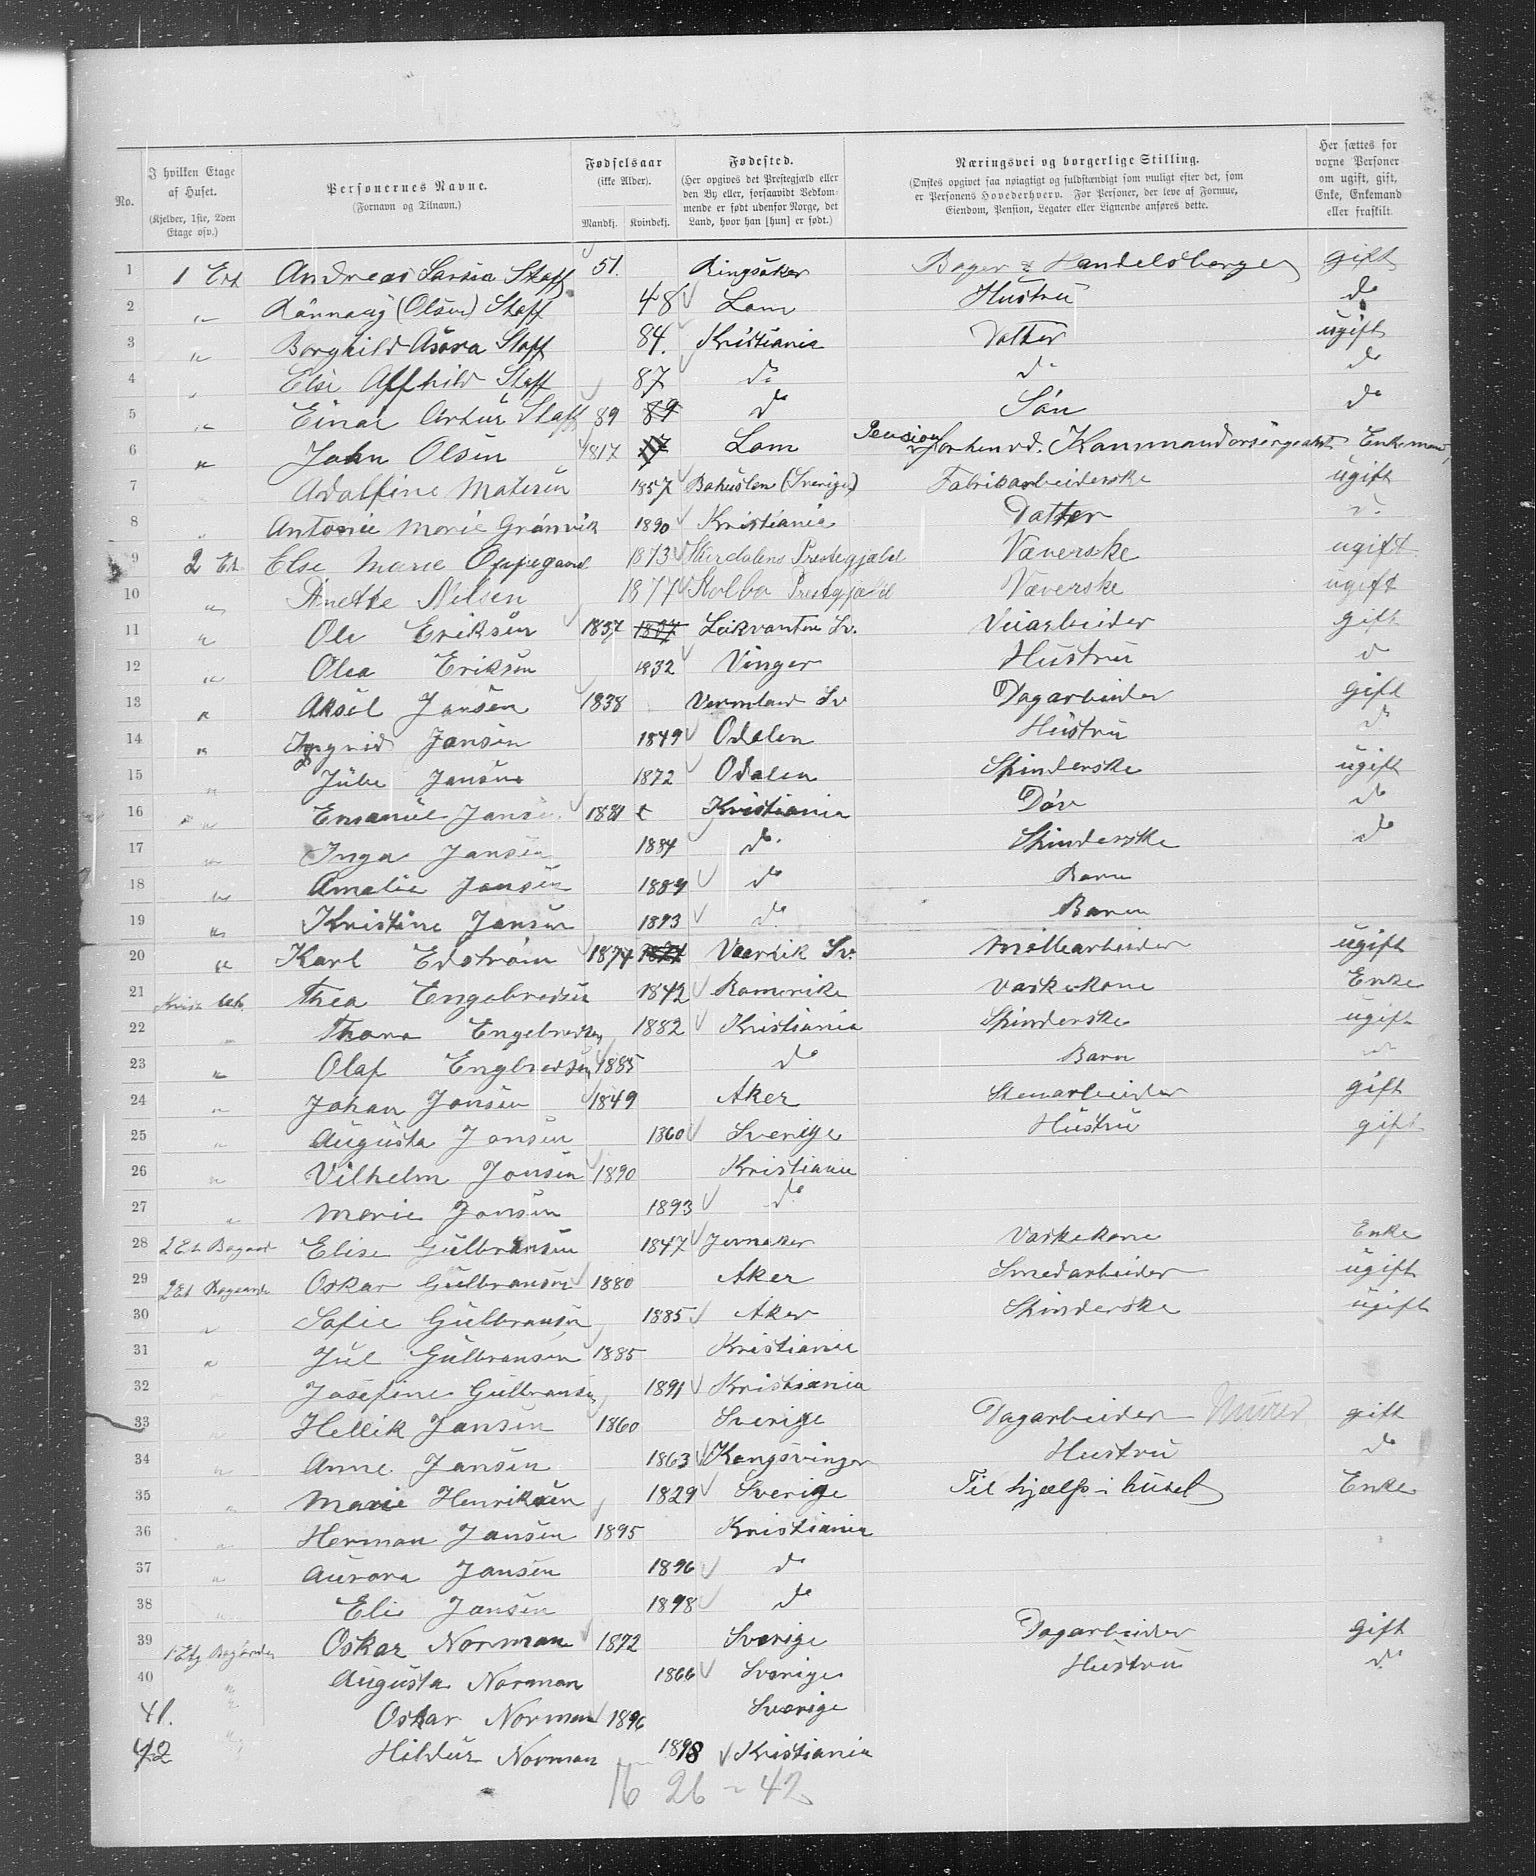 No. | I hvilken Etage af Huset. (Kjelder, 1ste, 2den Etage osv.) | Personernes Navne. (Fornavn og Tilnavn.) | Fødselsaar (ikke Alder). Mandkj. | Kvindekj. | Fødested. (Her opgives det Prestegjæld eller den By eller, forsaavidt Vedkommende er født udenfor Norge, det Land, hvor han [hun] er født.) | Næringsvei og borgerlige Stilling. (Ønskes opgivet saa nøiagtigt og fuldstændigt som muligt efter det, som er Personens Hovederhverv. For Personer, der leve af Formue, Eiendom, Pension, Legater eller Lignende anføres dette. | Her sættes for voxne Personer om ugift, gift, Enke, Enkemand eller fraskilt.
1 1 Et Andreas Larsen Staff 51. Ringsaker Bager & Handelsborger gift
2 " Rännaug (Olsen) Staff 48 Lom Hustru do
3 " Borghild Asora Staff 84. Kristiania Datter ugift
4 " Else Alfhild Staff 87 do do do
5 " Einar Artur Staff 89 89 do Søn do
6 " John Olsen 1817 17 Lom Pension forhenv. Kommandersergeant Enkemand
7 Adolfine Matesen 1857 Bohuslen (Sverige) Fabrikarbeiderske ugift
8 " Antonie Marie Grönvik 1890 Kristiania Datter do
9 2 Et Else Marie Oppegaard 1873 Prestegjæld Væverske ugift
10 " Anette Nilsen 1877 Kolbo Prestgjæld Væverske ugift
11 " Ole Eriksen 1837 1837 Leikvanten Sv. Veiarbeider gift
12 " Olea Eriksen 1832 Vinger Hustru do
13 " Aksel Jansen 1838 Vermland Sv Dagarbeider gift
14 " Ingrid Jansen 1849 Odalen Hustru do
15 " Julie Jansen 1872 Odalen Spinderske ugift
16 " Emanuel Jansen 1881 Kristiania Døv do
17 " Inga Jansen 1884 do. Spinderske do
18 " Amalie Jansen 1889 do Barn
19 " Kristine Jansen 1893 do Baren
20 " Karl Edstrøm 1874 Sv. Møllearbeider ugift
21 Thea Engebredsen 1842 Romerike Vaskekone Enke
22 " Thora Engebredsen 1882 Kristiania Spinderske ugift
23 " Olaf Engbredsen 1885 do Barn
24 " Johan Jonsen 1849 Aker Stenarbeider gift
25 " Augusta Jonsen 1860 Sverige Hustru gift
26 " Vilhelm Jonsen 1890 Kristiania
27 " Marie Jonsen 1893 do
28 2 Et Bagaard Elise Gulbransen 1847 Jevnaker Vaskekone Enke
29 2 Et Bagaarde Oskar Gulbransen 1880 Aker Smedarbeider ugift
30 " Sofie Gulbransen 1885 Aker Spinderske ugift
31 " Jul Gulbransen 1885 Kristiania
32 Josefine Gulbransen 1891 Kristiania
33 " Hellik Jansen 1860 Sverige Dagarbeider Murer gift
34 " Anne Jansen 1863 Kongsvinger Hustru do
35 " Marie Henriksen 1829 Sverige Til hjælp i huset Enke
36 " Herman Jansen 1895 Kristiania
37 " Aurora Jansen 1896 do
38 " Eli Jansen 1898 do
39 1 Etg Bagården Oskar Norman 1872 Sverige Dagarbeider Gift
40 " Augusta Norman 1866 Sverige Hustru do
41. " Oskar Norman 1896 Sverige
42 " Hildur Norman 1898 Kristiania
16 26 = 42